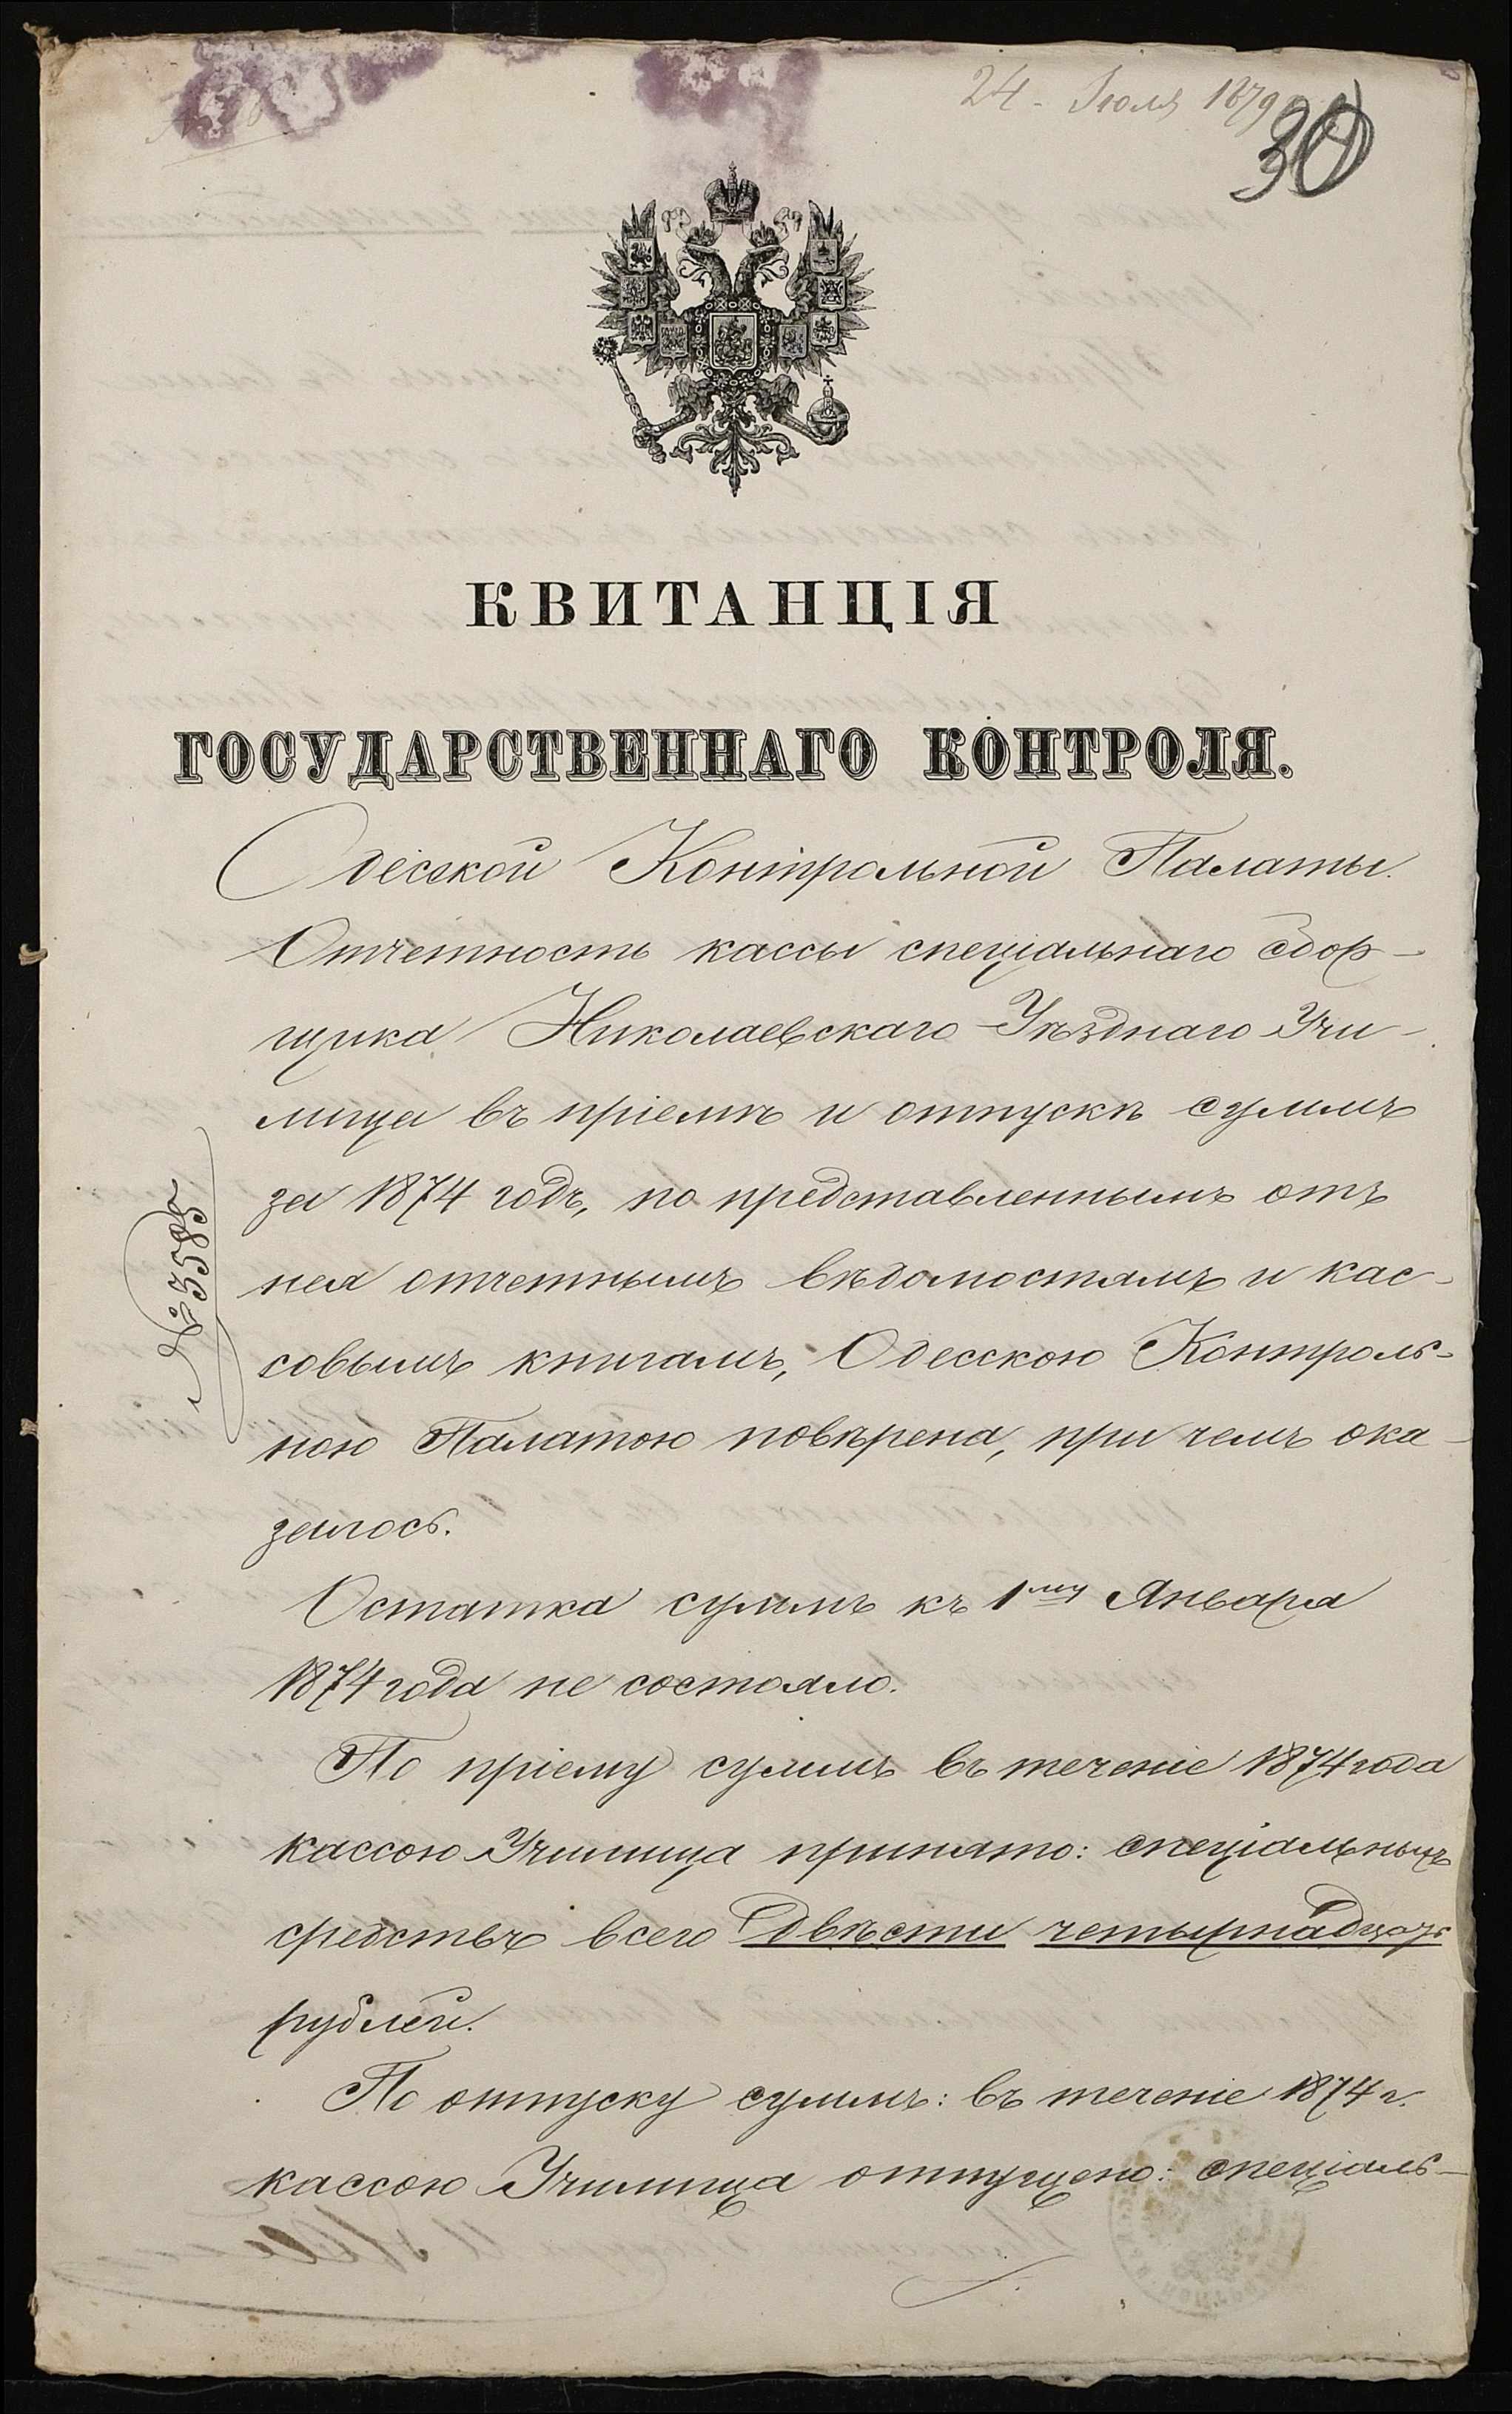 24 - Июля 1879
30
КВИТАНЦІЯ
ГОСУДАРСТВЕННАГО КОНТРОЛЯ.
Одесской Контрольной Палаты.
Отчетность кассы спеціальнаго сбор-
щика Николаевскаго Уѣзднаго Учи-
лища въ пріемѣ и отпускѣ суммъ
за 1874 годъ, по представленнымъ отъ
нея отчетнымъ вѣдомостямъ и кас-
совымъ книгамъ, Одесскою Контроль-
ною Палатою повѣрена, при чемъ ока-
залось.
№ 3585
Остатка суммъ къ 1му Января
1874 года не состояло.
По пріему суммъ въ теченіе 1874 года
кассою Училища принято: спеціальныхъ
средствъ всего двѣсти четырнадцать
рублей.
По отпуску суммъ: въ теченіе 1874 г.
кассою Училища отпущено: спеціаль-